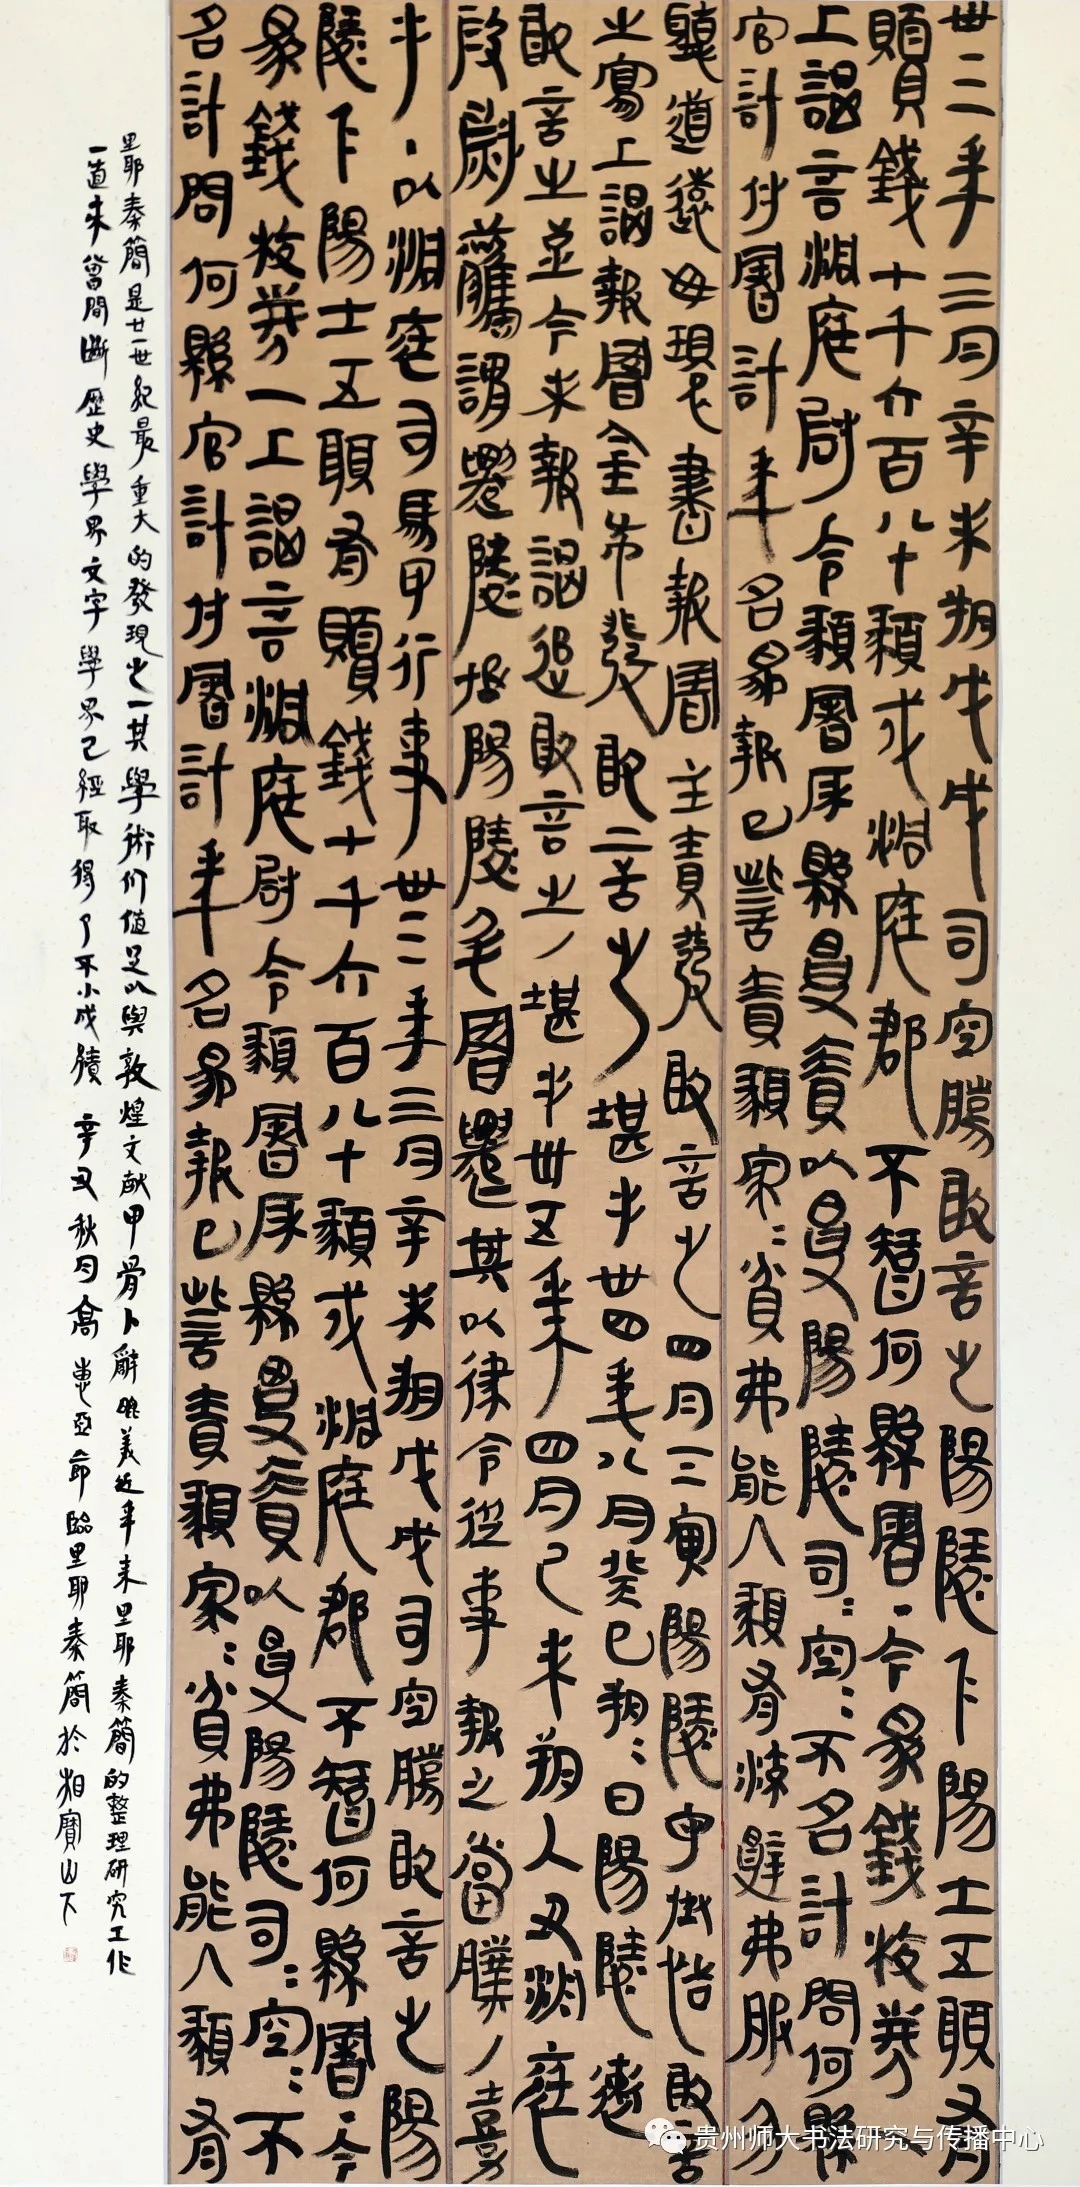 卅三年三月辛未朔戊戌司空騰敢言之陽陵仁陽士五顝有
贖錢七千六百八十顝戍洞庭郡不智何縣署・今為錢校券
上謁言洞庭尉令顝署所縣受責以受陽陵司=空=不名計問何縣
官計付署計年名為報已訾責顝家=貧弗能入顝有流辤弗服勿
聽道遠毋環書報署主責發敢言之四月壬寅陽陵守丞恬敢言
之寫上謁報署金布發敢言之堪手卅四年八月癸巳朔=日陽陵遬
敢言之至今未報謁追敢言之/堪手卅五年四月己未朔乙丑洞庭
叚尉觿謂遷陵丞陽陵卒署遷其以律令從事報之當騰/嘉
手・以洞庭司馬甲行事卅三年三月辛未朔戊戌司空騰敢言之陽
陵仁陽士五顝有贖錢七千六百八十顝戍洞庭郡不智何縣署・今
為錢校券一上謁言洞庭尉令顝署所縣受責以受陽陵司=空=不
名計問何縣官計付署計年名為報已訾責顝家=貧弗能入顝有
里耶秦簡是廿一世紀最重大的發現之一其學術价值足以與敦煌文献甲骨卜辭媲美近年来里耶秦簡的整理研究工作
一直未曾間斷歷史學界文字學界已經取得了不小成績 辛丑秋月高 惠亞節臨里耶秦簡於相寶山下
贵州师大书法研究与传播中心